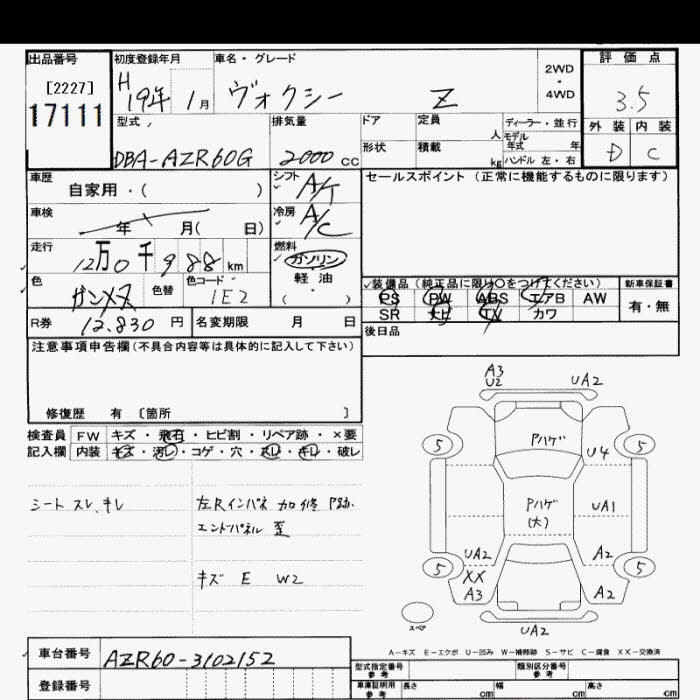 出品番号 初度登録年月 車名・グレード 2WD・4WD 評価点
[2227] H 19年 1月 ヴォクシー Z 3.5
17111
型式 排気量 ドア 定員 人 ディーラー・並行 外装 内装
DBA-AZR60G 2000 cc 形状 積載 kg モデル年式 年 D C
ハンドル 左・右
車歴 シフト A/T セールスポイント (正常に機能するものに限ります)
自家用・( )
車検 年 月( 日) 冷房 A/C
走行 12万0千988km 燃料 ガソリン
軽油
( )
色 ガンメタ 色替 色コード 1E2
装備品 (純正品に限り〇をつけてください) 新車保証書
PS PW ABS エアB AW 有・無
SR ナビ TV カワ
R券 12,830円 名変期限 月 日 後日品
注意事項申告欄 (不具合内容等は具体的に記入して下さい)
修復歴 有 [箇所 ]
検査員 FW キズ・飛石・ヒビ割・リペア跡・×要
記入欄 内装 キズ・汚レ・コゲ・穴・スレ・キレ・破レ
シート スレ、キレ
左Rインパネ 加修 P跡、
エンドパネル 歪
キズ E W2
A3
U2 UA2
5 Pハゲ 5
U4
Pハゲ UA1
(大)
UA2 A2
5 XX 5
A3 A2
スペア UA2
A-キズ E-エクボ U-凹み W-補修跡 S-サビ C-腐食 XX-交換済
車台番号 AZR60-3102152
登録番号
型式指定番号 参考 類別区分番号 参考
車庫証明用 参考 長さ cm 幅 cm 高さ cm